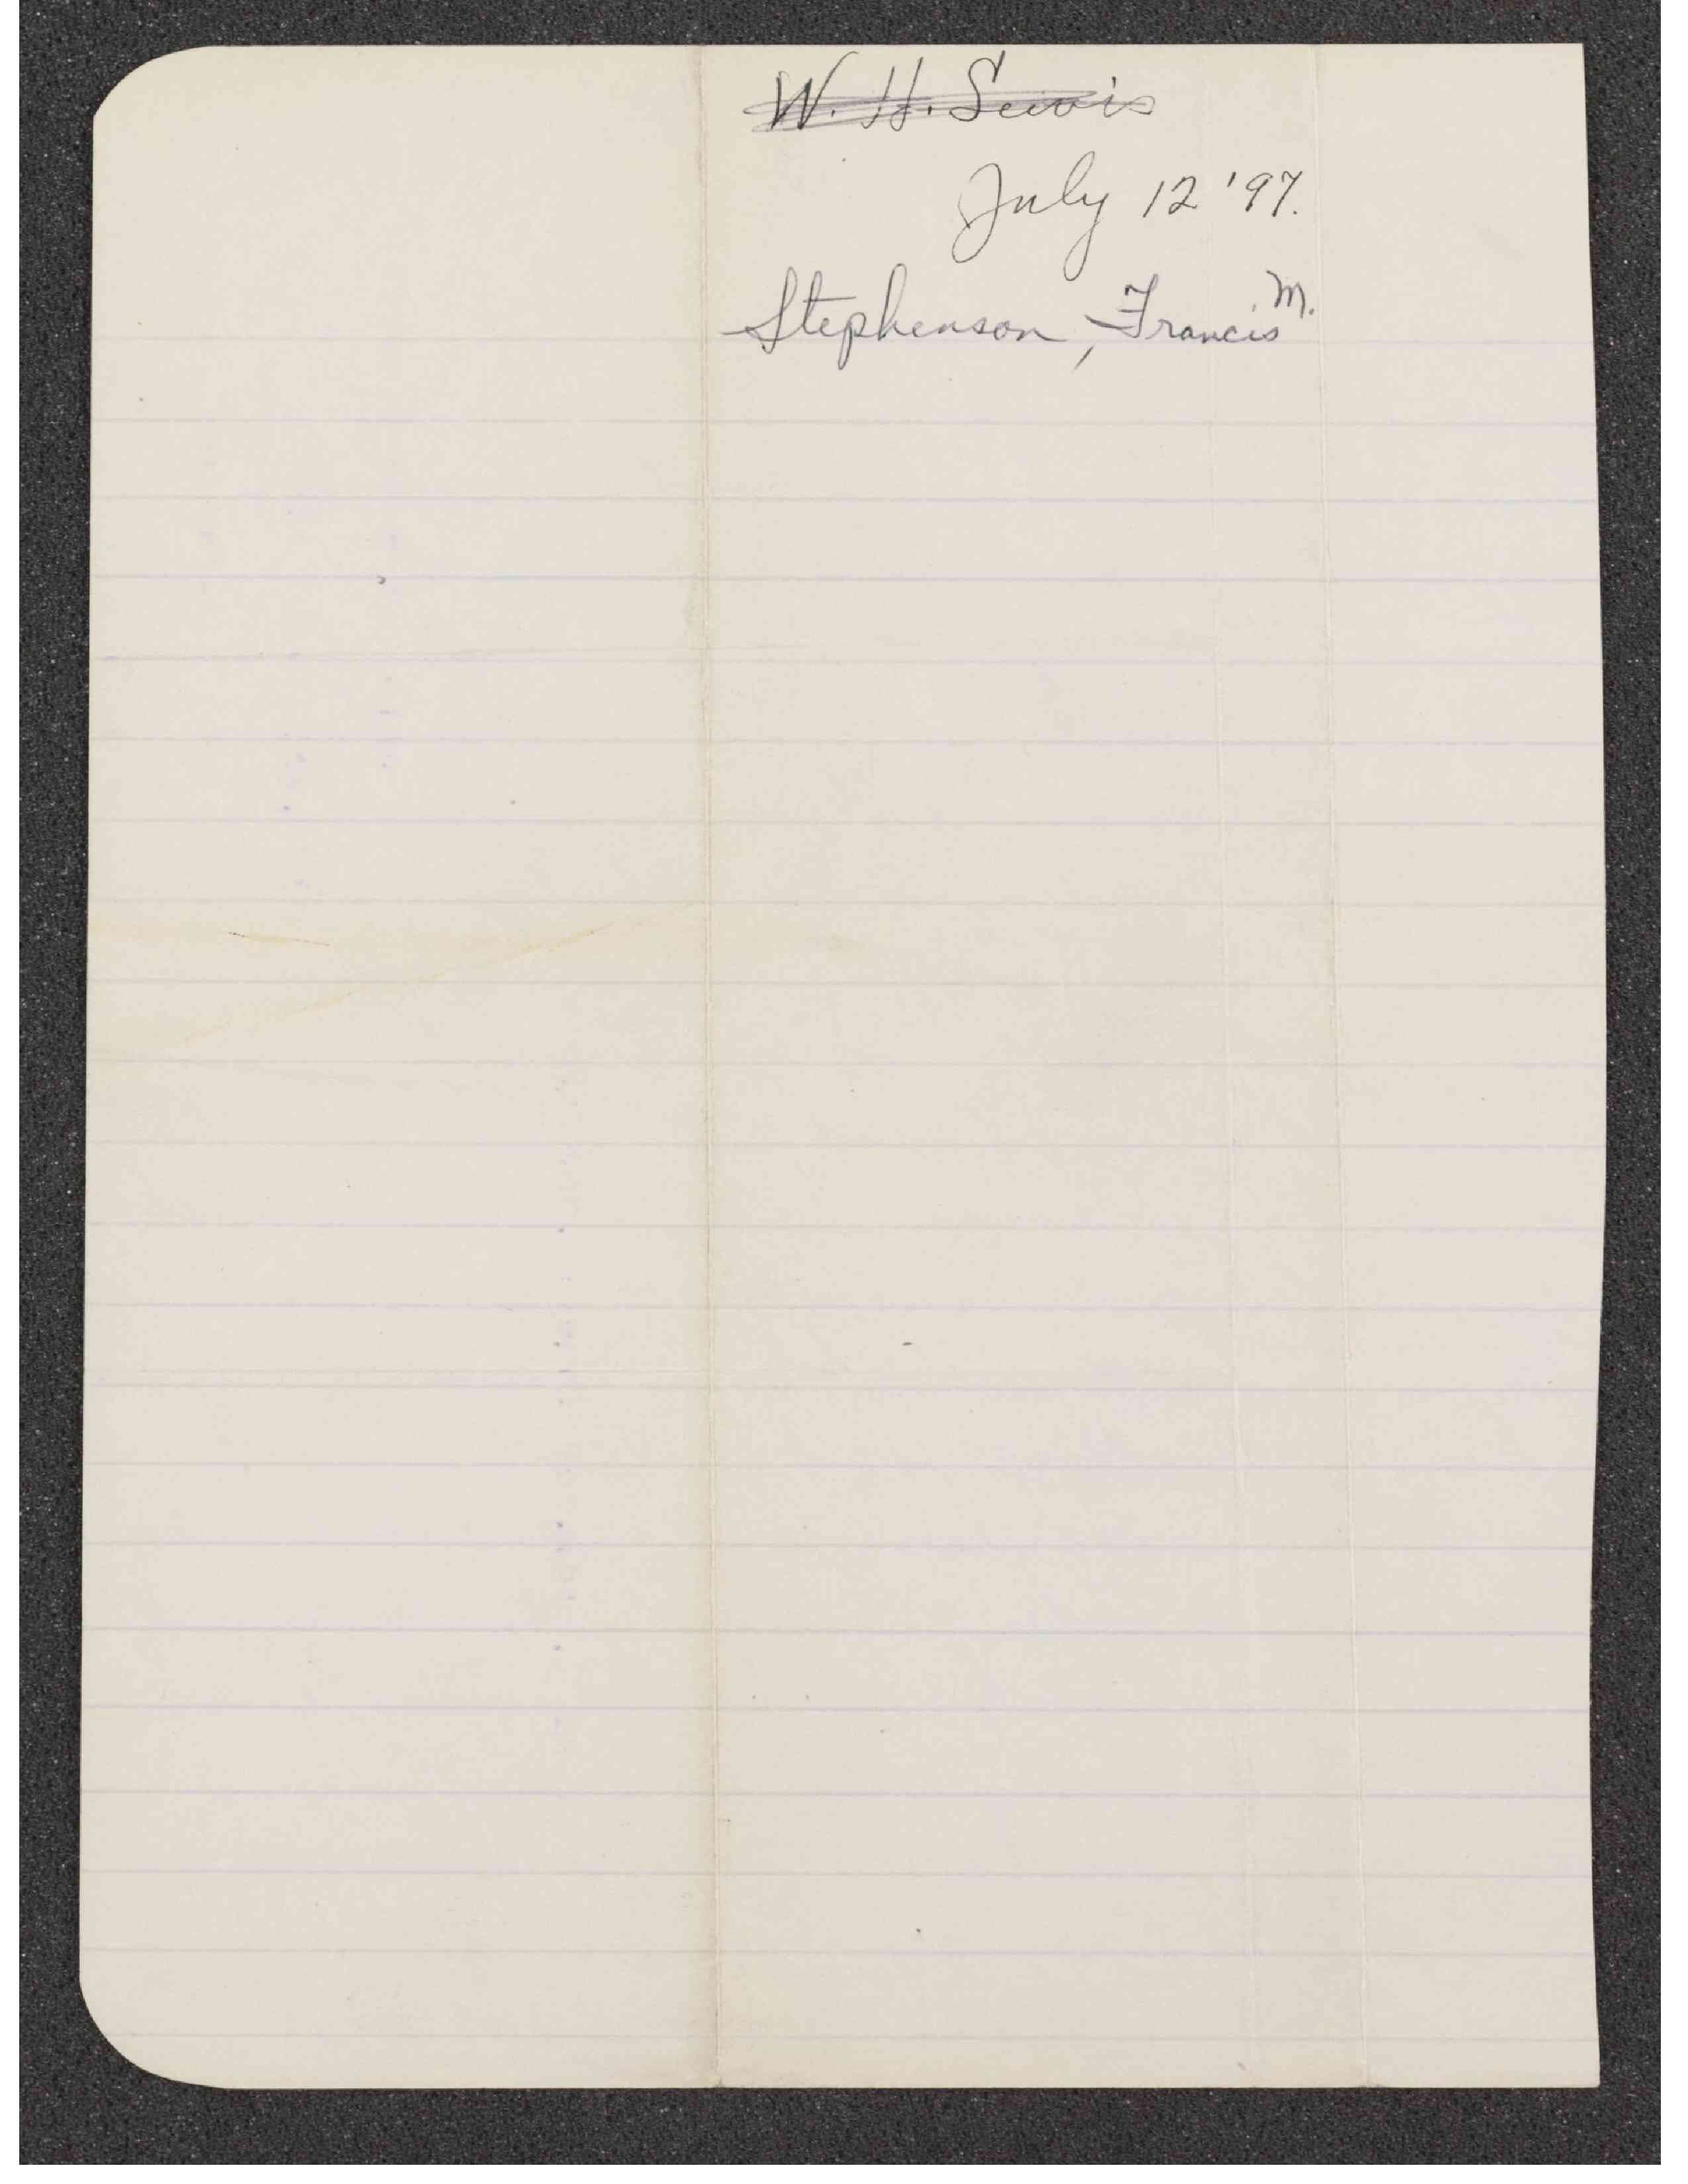 W. H. Seivis
July 12 '97.
Stephenson, Francis M.